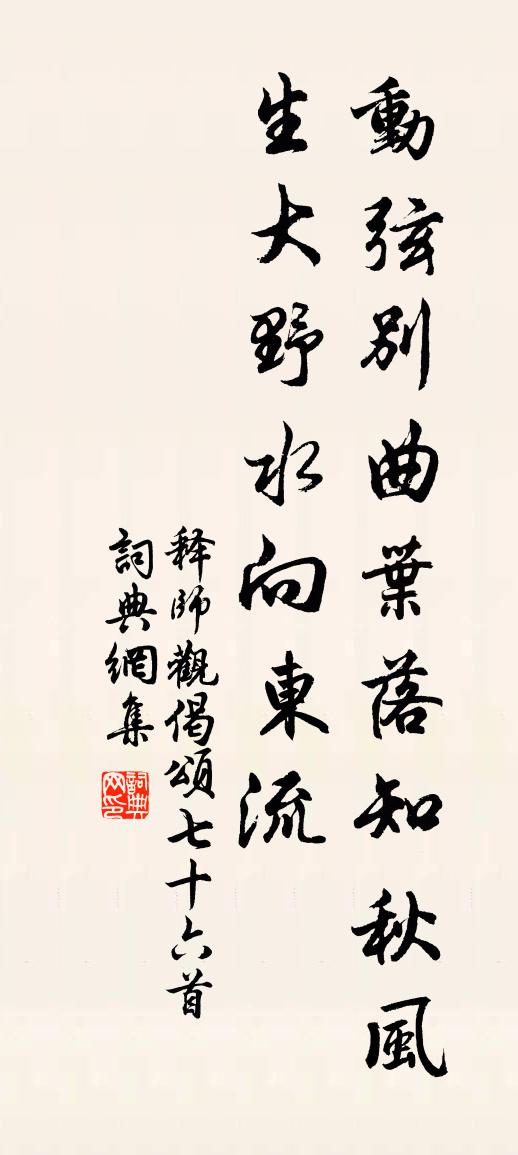 動弦別曲葉落知秋風
生大野水向東流
释師觀偈頌七十六首
詞典網集
詞典網印